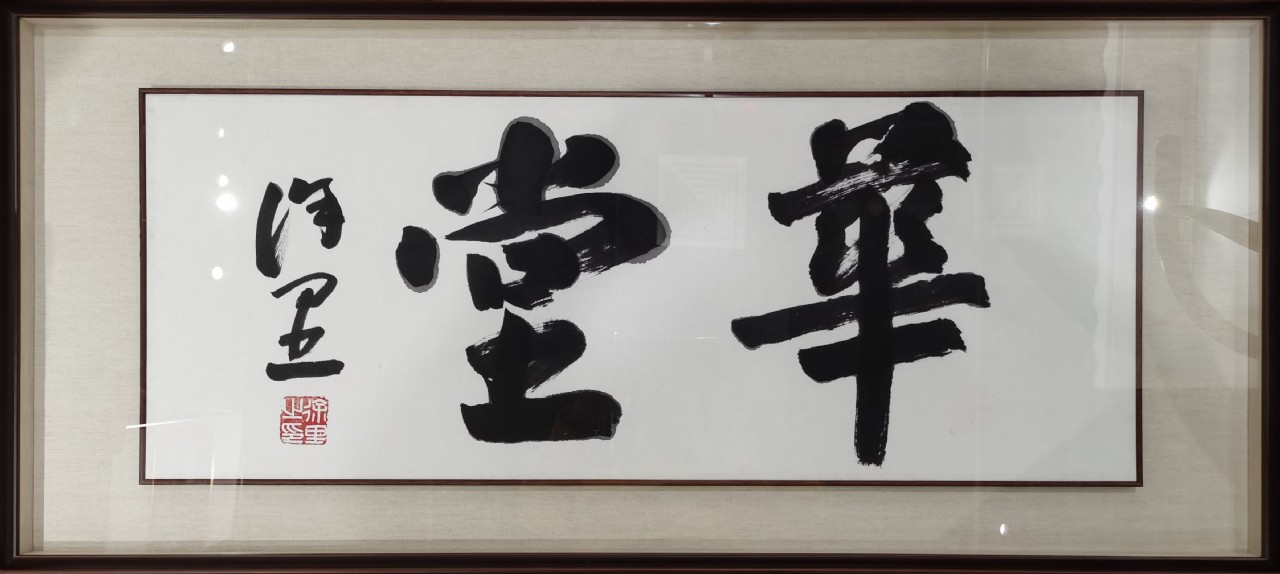 華堂
徐里
徐里之印